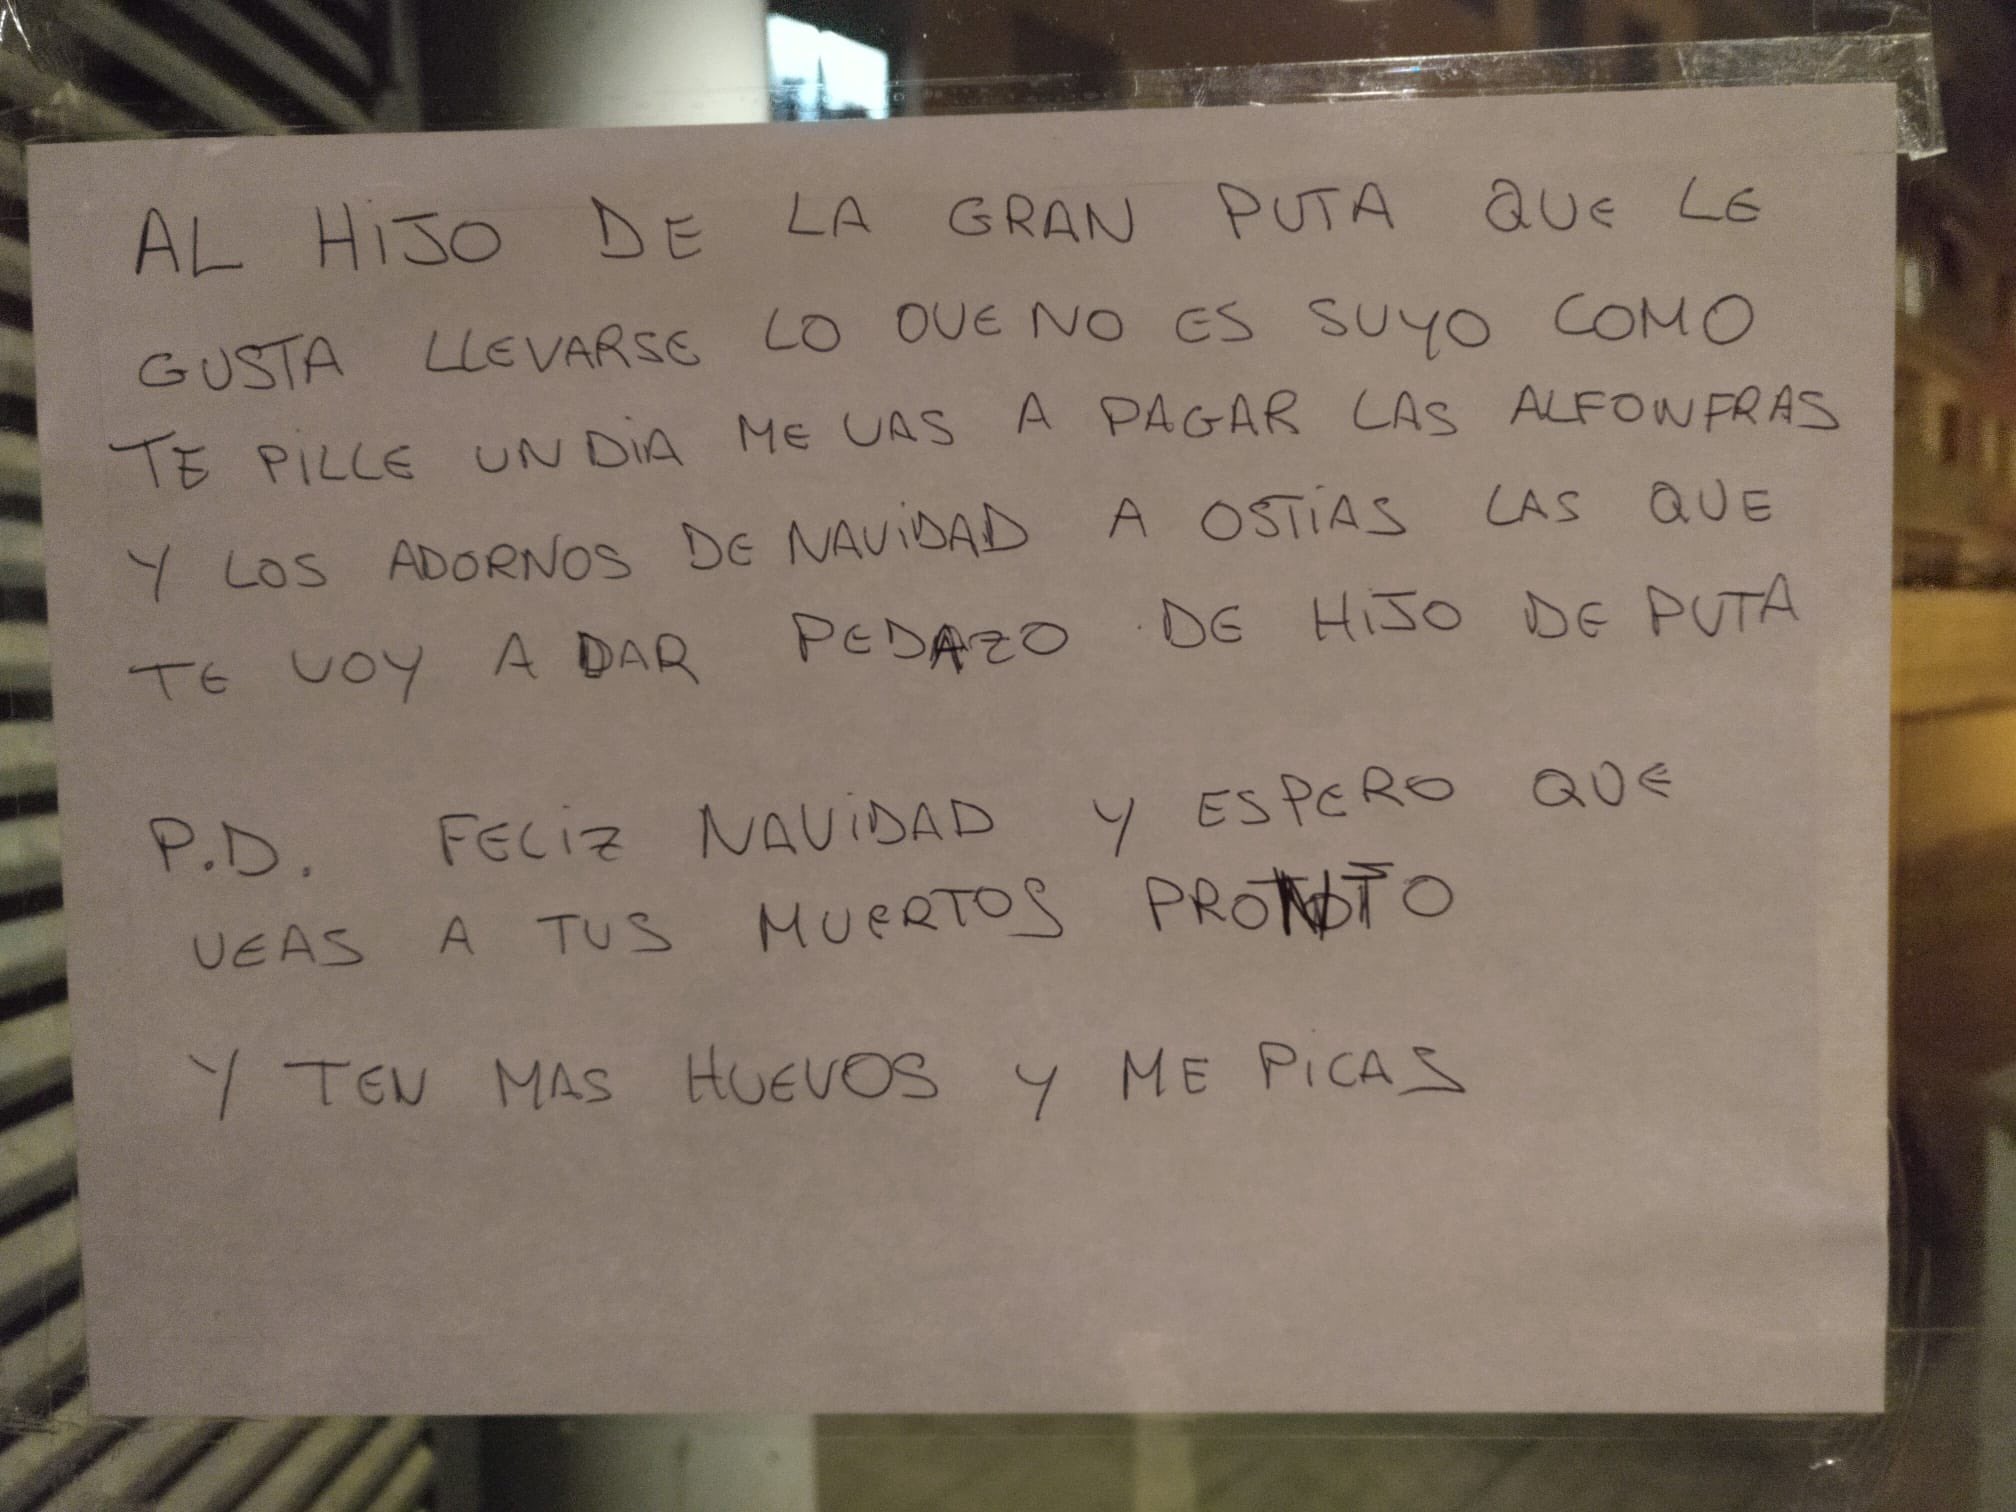 AL HiJO DE LA GRAN PUTA QUE LE
GUSTA LLEVARSE LO QUE NO ES SUYO COMO
TE PiLLE UN DiA ME VAS A PAGAR LAS ALFONFRAS
Y LOS ADORNOS DE NAViDAD A OSTiAS LAS QUE
TE VOY A DAR PEDAZO DE HiJO DE PUTA
P.D. FELiZ NAViDAD Y ESPERO QUE
VEAS A TUS MUERTOS PRONTO
Y TEN MAS HUEVOS Y ME PiCAS